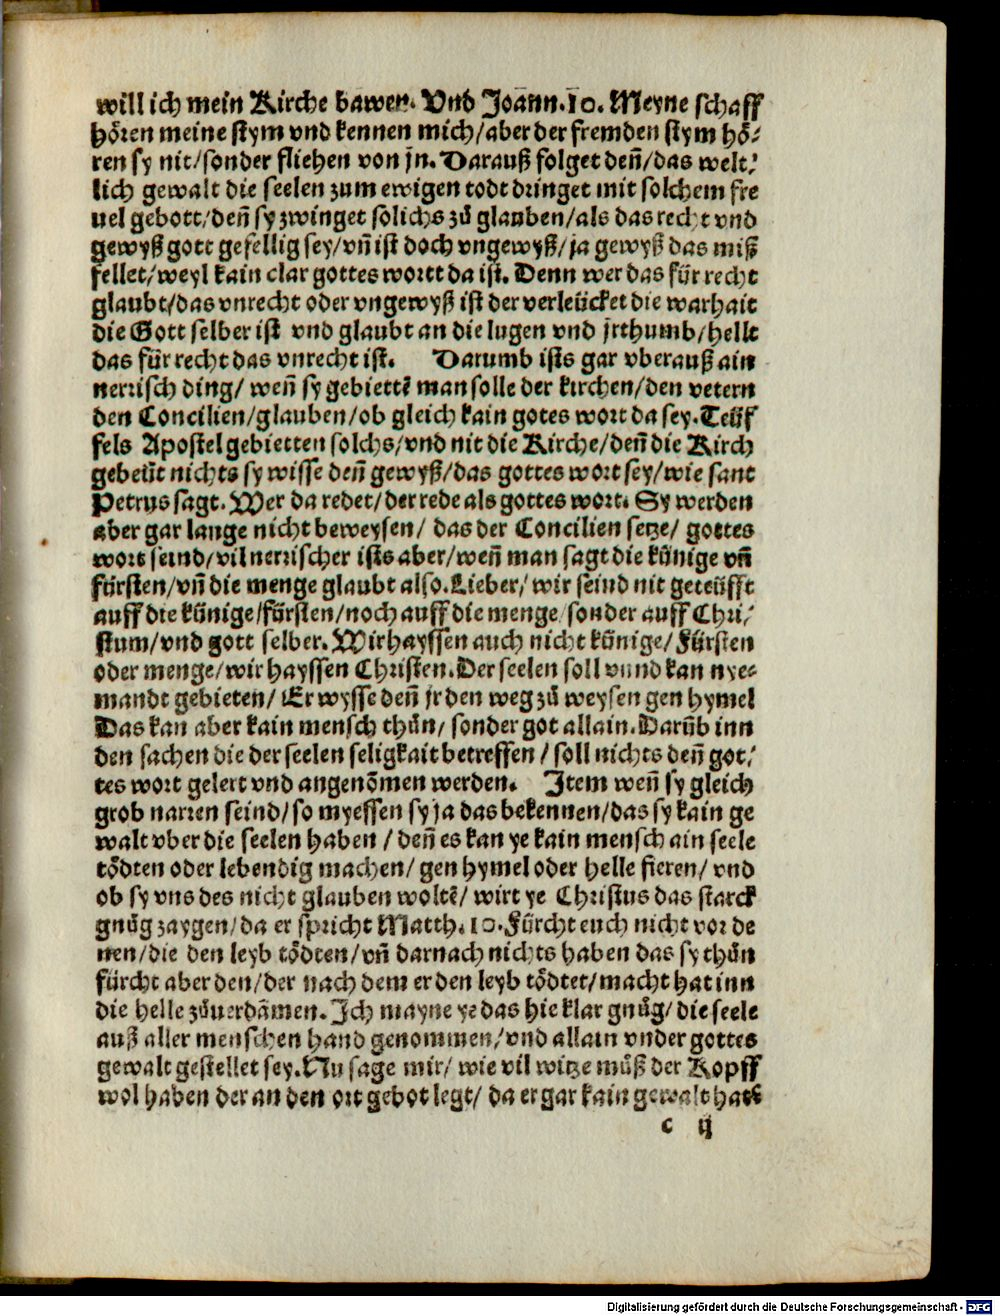 will ich mein Kirche bawen. Vnd Joañn.10. Meyne schaff
hören meine stym vnd kennen mich/aber der fremden stym hö⸗
ren sy nit/sonder fliehen von jn. Darauß folget deñ/das welt⸗
lich gewalt die seelen zum ewigen todt dringet mit solchem fre
uel gebott/deñ sy zwinget solichs zů glauben/als das recht vnd
gewyß gott gefellig sey/vñ ist doch vngewyß/ja gewyß das miß
fellet/weyl kain clar gottes wortt da ist. Denn wer das für recht
glaubt/das vnrecht oder vngewyß ist der verleücket die warhait
die Gott selber ist vnd glaubt an die lugen vnd jrthumb/hellt
das für recht das vnrecht ist. Darumb ists gar vberauß ain
nerrisch ding/ weñ sy gebiettẽ man solle der kirchen/den vetern
den Concilien/glauben/ob gleich kain gotes wort da sey.Teüf
fels Apostel gebietten solchs/vnd nit die Kirche/deñ die Kirch
gebeüt nichts sy wisse deñ gewyß/das gottes wort sey/wie sant
Petrus sagt. Wer da redet/der rede als gottes wort. Sy werden
aber gar lange nicht beweysen/ das der Concilien setze/ gottes
wort seind/vil nerrischer ists aber/weñ man sagt die künige vñ
fürsten/vñ die menge glaubt also.Lieber/ wir seind nit geteüfft
auff die künige/fürsten/noch auff die menge/sonder auff Chri⸗
stum/vnd gott selber. Wir hayssen auch nicht künige/ Fürsten
oder menge/wir hayssen Christen.Der seelen soll vnnd kan nye⸗
mandt gebieten/ Er wysse deñ jr den weg zů weysen gen hymel
Das kan aber kain mensch thůn/ sonder got allain.Darũb inn
den sachen die der seelen seligkait betreffen / soll nichts deñ got⸗
tes wort gelert vnd angenõmen werden. Item weñ sy gleich
grob narren seind/so myessen sy ja das bekennen/das sy kain ge
walt vber die seelen haben / deñ es kan ye kain mensch ain seele
tödten oder lebendig machen/ gen hymel oder helle fieren/ vnd
ob sy vns des nicht glauben woltẽ/ wirt ye Christus das starck
gnůg zaygen/da er spricht Matth.10.Fürcht euch nicht vor de
nen/die den leyb tödten/vñ darnach nichts haben das sy thůn
fürcht aber den/der nach dem er den leyb tödtet/macht hat inn
die helle zůuerdãmen. Ich mayne ye das hie klar gnůg/ die seele
auß aller menschen hand genommen/vnd allain vnder gottes
gewalt gestellet sey.Nu sage mir/ wie vil witze můß der Kopff
wol haben der an den ort gebot legt/ da er gar kain gewalt hatt
c ij
Digitalisierung gefördert durch die Deutsche Forschungsgemeinschaft - DFG